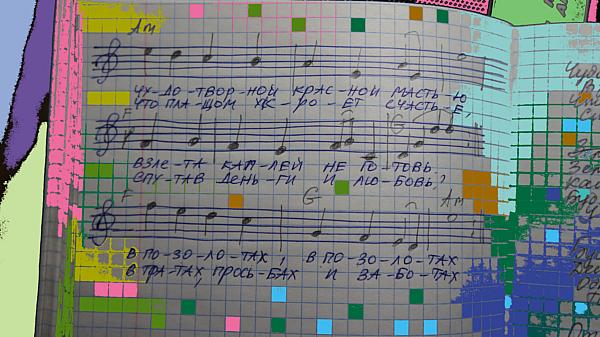 Am
ЧУ-ДО-ТВОР-НОЙ КРАС-НОЙ МАСТЬ-Ю
ЧТО ПЛА-ЩОМ
РО-ЕТ СЧАСТЬ-Е,
F G
ВЗЛЕ-ТА КАП-ЛЕЙ НЕ ГО-ТОВЬ
СПУ-ТАВ ДЕНЬ-ГИ И ЛЮ-БОВЬ?
F G Am
В ПО-ЗО-ЛО-ТАХ, В ПО-ЗО-ЛО-ТАХ
В ТРА-ТАХ, ПРОСЬ-БАХ И ЗА-БО-ТАХ